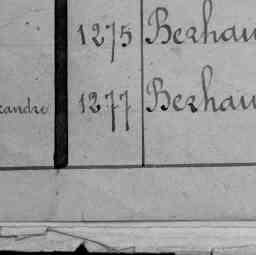 1275 Berhau
candre 1277 Berhau